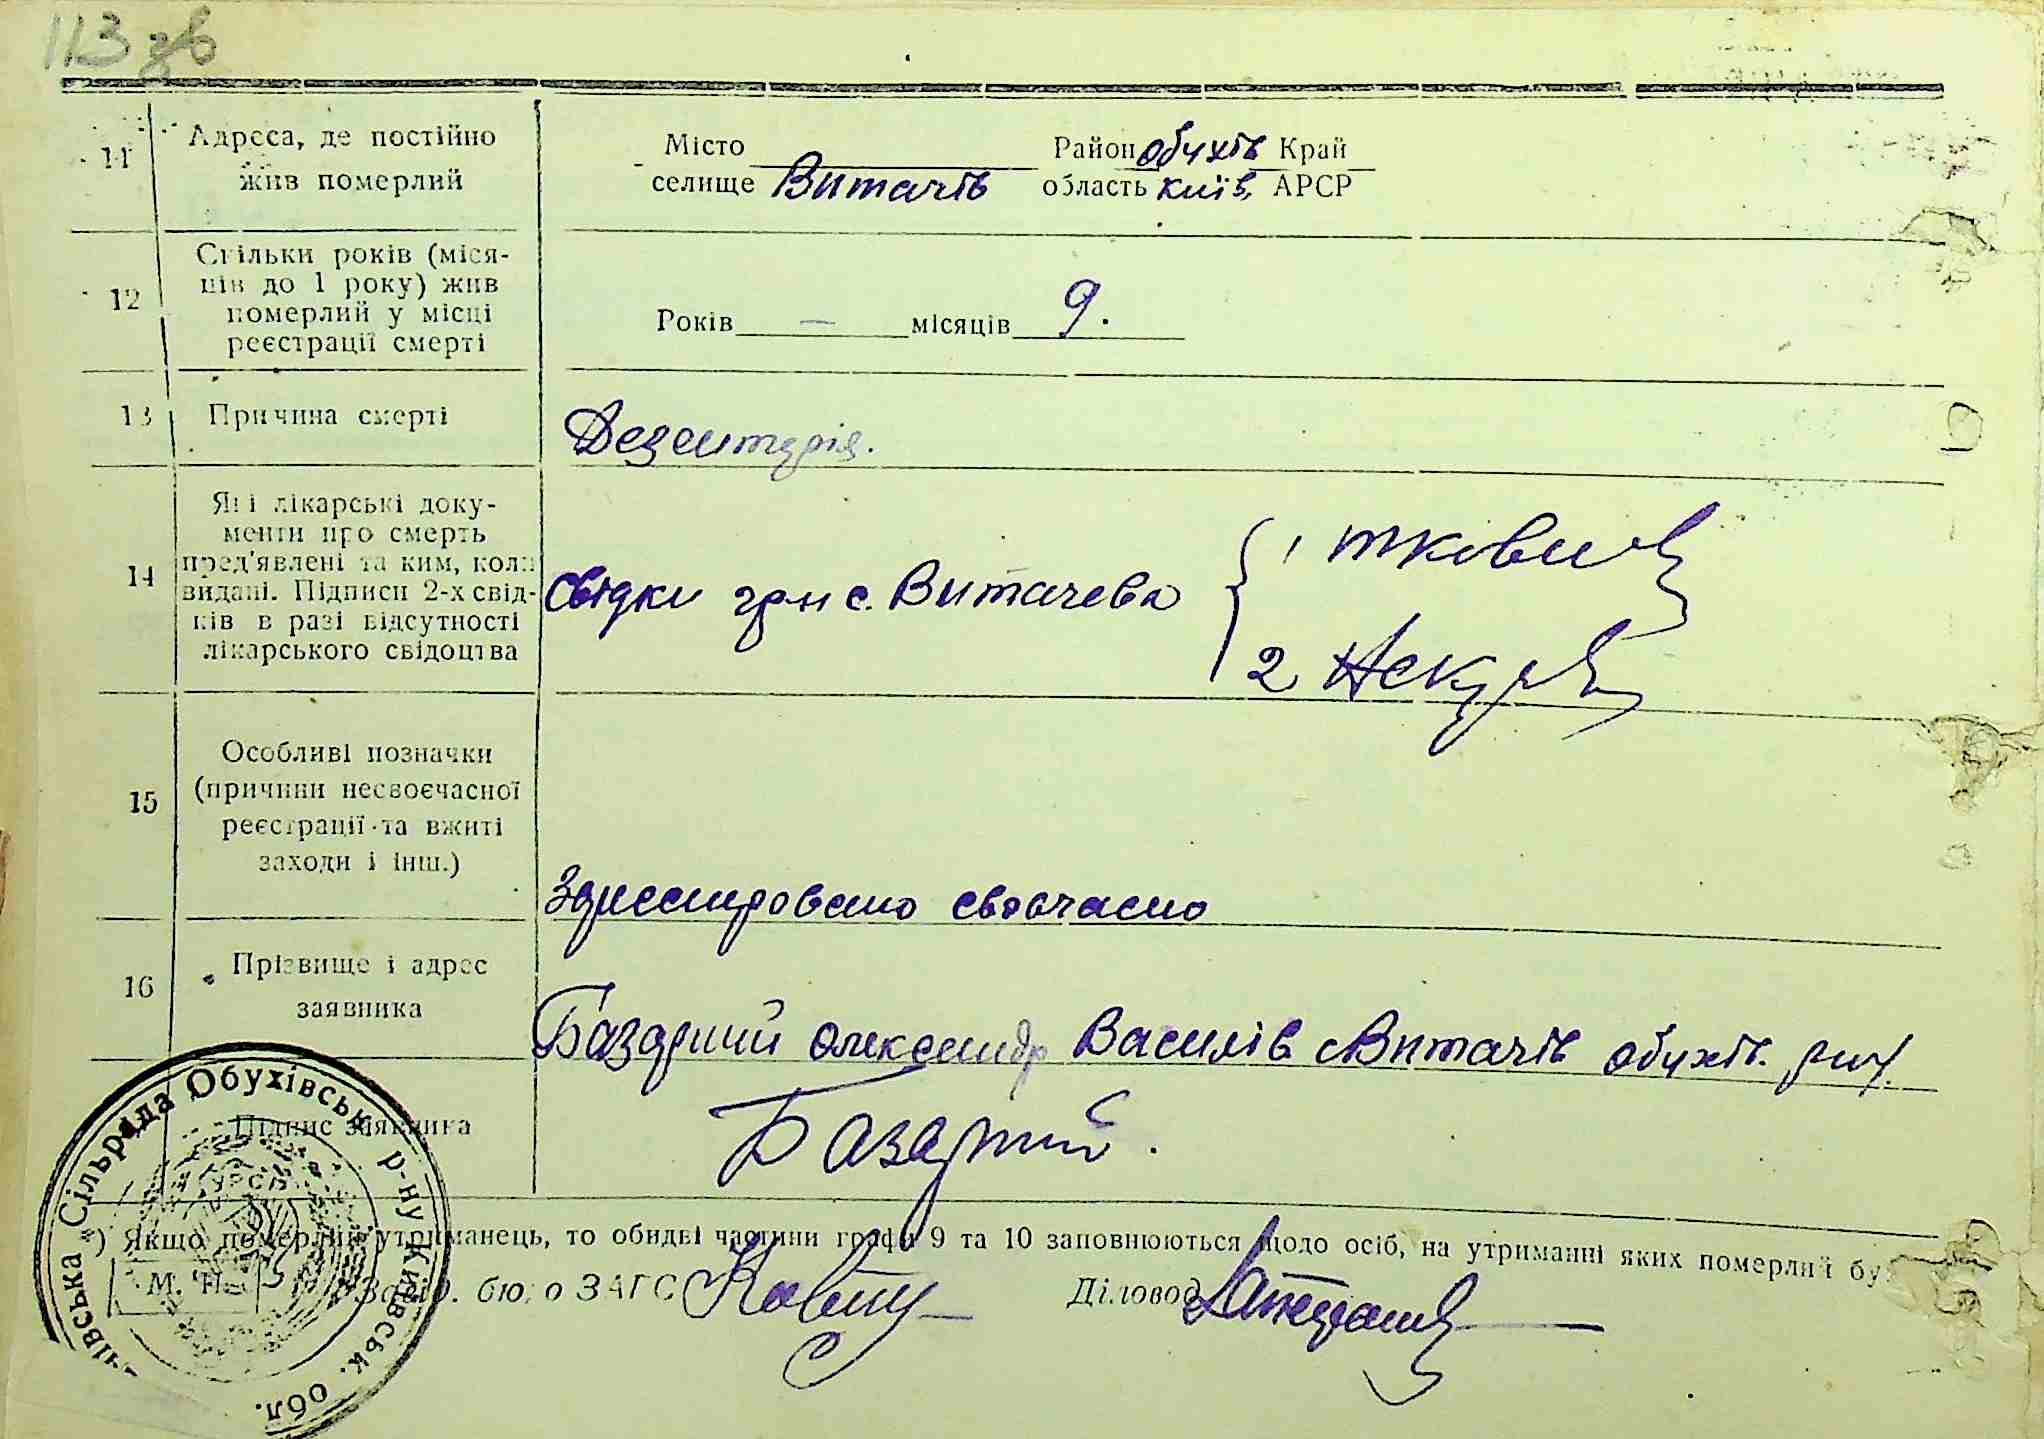 113 зв
11
Адреса, де постійно
жив померлий
Місто Район Обухів Край
селище Витачів область Київ. АРСР
12
Скільки років (міся-
ців до 1 року) жив
померлий у місці
реєстрації смерті
Років — місяців 9.
13
Причина смерті
Дезентерія.
14
Які лікарські доку-
менти про смерть
пред'явлені та ким, коли
видані. Підписи 2-х свід-
ків в разі відсутності
лікарського свідоцтва
свідки гр-н с. Витачева
1
2
15
Особливі позначки
(причини несвоєчасної
реєстрації та вжиті
заходи і інш.)
своєчасно
16
Прізвище і адрес
заявника
Базарний Олександр Василів с Витачів Обухів.
Підпис заявника
Базарний.
) Якщо померлий утриманець, то обидві частини графи 9 та 10 заповнюються щодо осіб, на утриманні яких померлий бу
М. П.
Завід. бюро ЗАГС
Діловод
чівська Сільрада Обухівськ. р-ну Київськ. обл.
УРСР